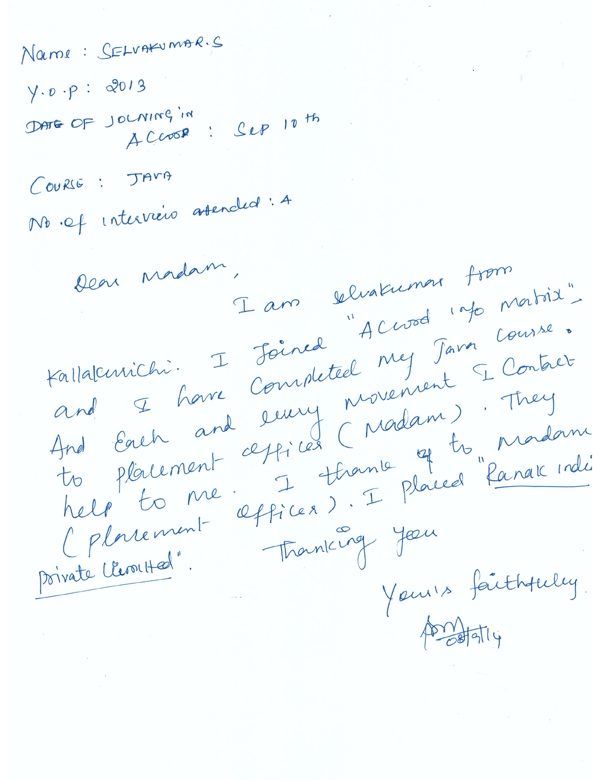 Name : SELVAKUMAR.S
Y.O.P : 2013
DATE OF JOINING IN
ACwood : Sep 10th
COURSE : JAVA
No. of interview attended : 4
Dear Madam,
I am selvakumar from
Kallakurichi. I Joined "ACwood info matrix"
and I have completed my Java course.
And Each and every movement I Contact
to placement officer (Madam). They
help to me. I thank to Madam
(placement officer). I placed "Ranak india
private limited".
Thanking you
Your's faithfuley
08/9/14